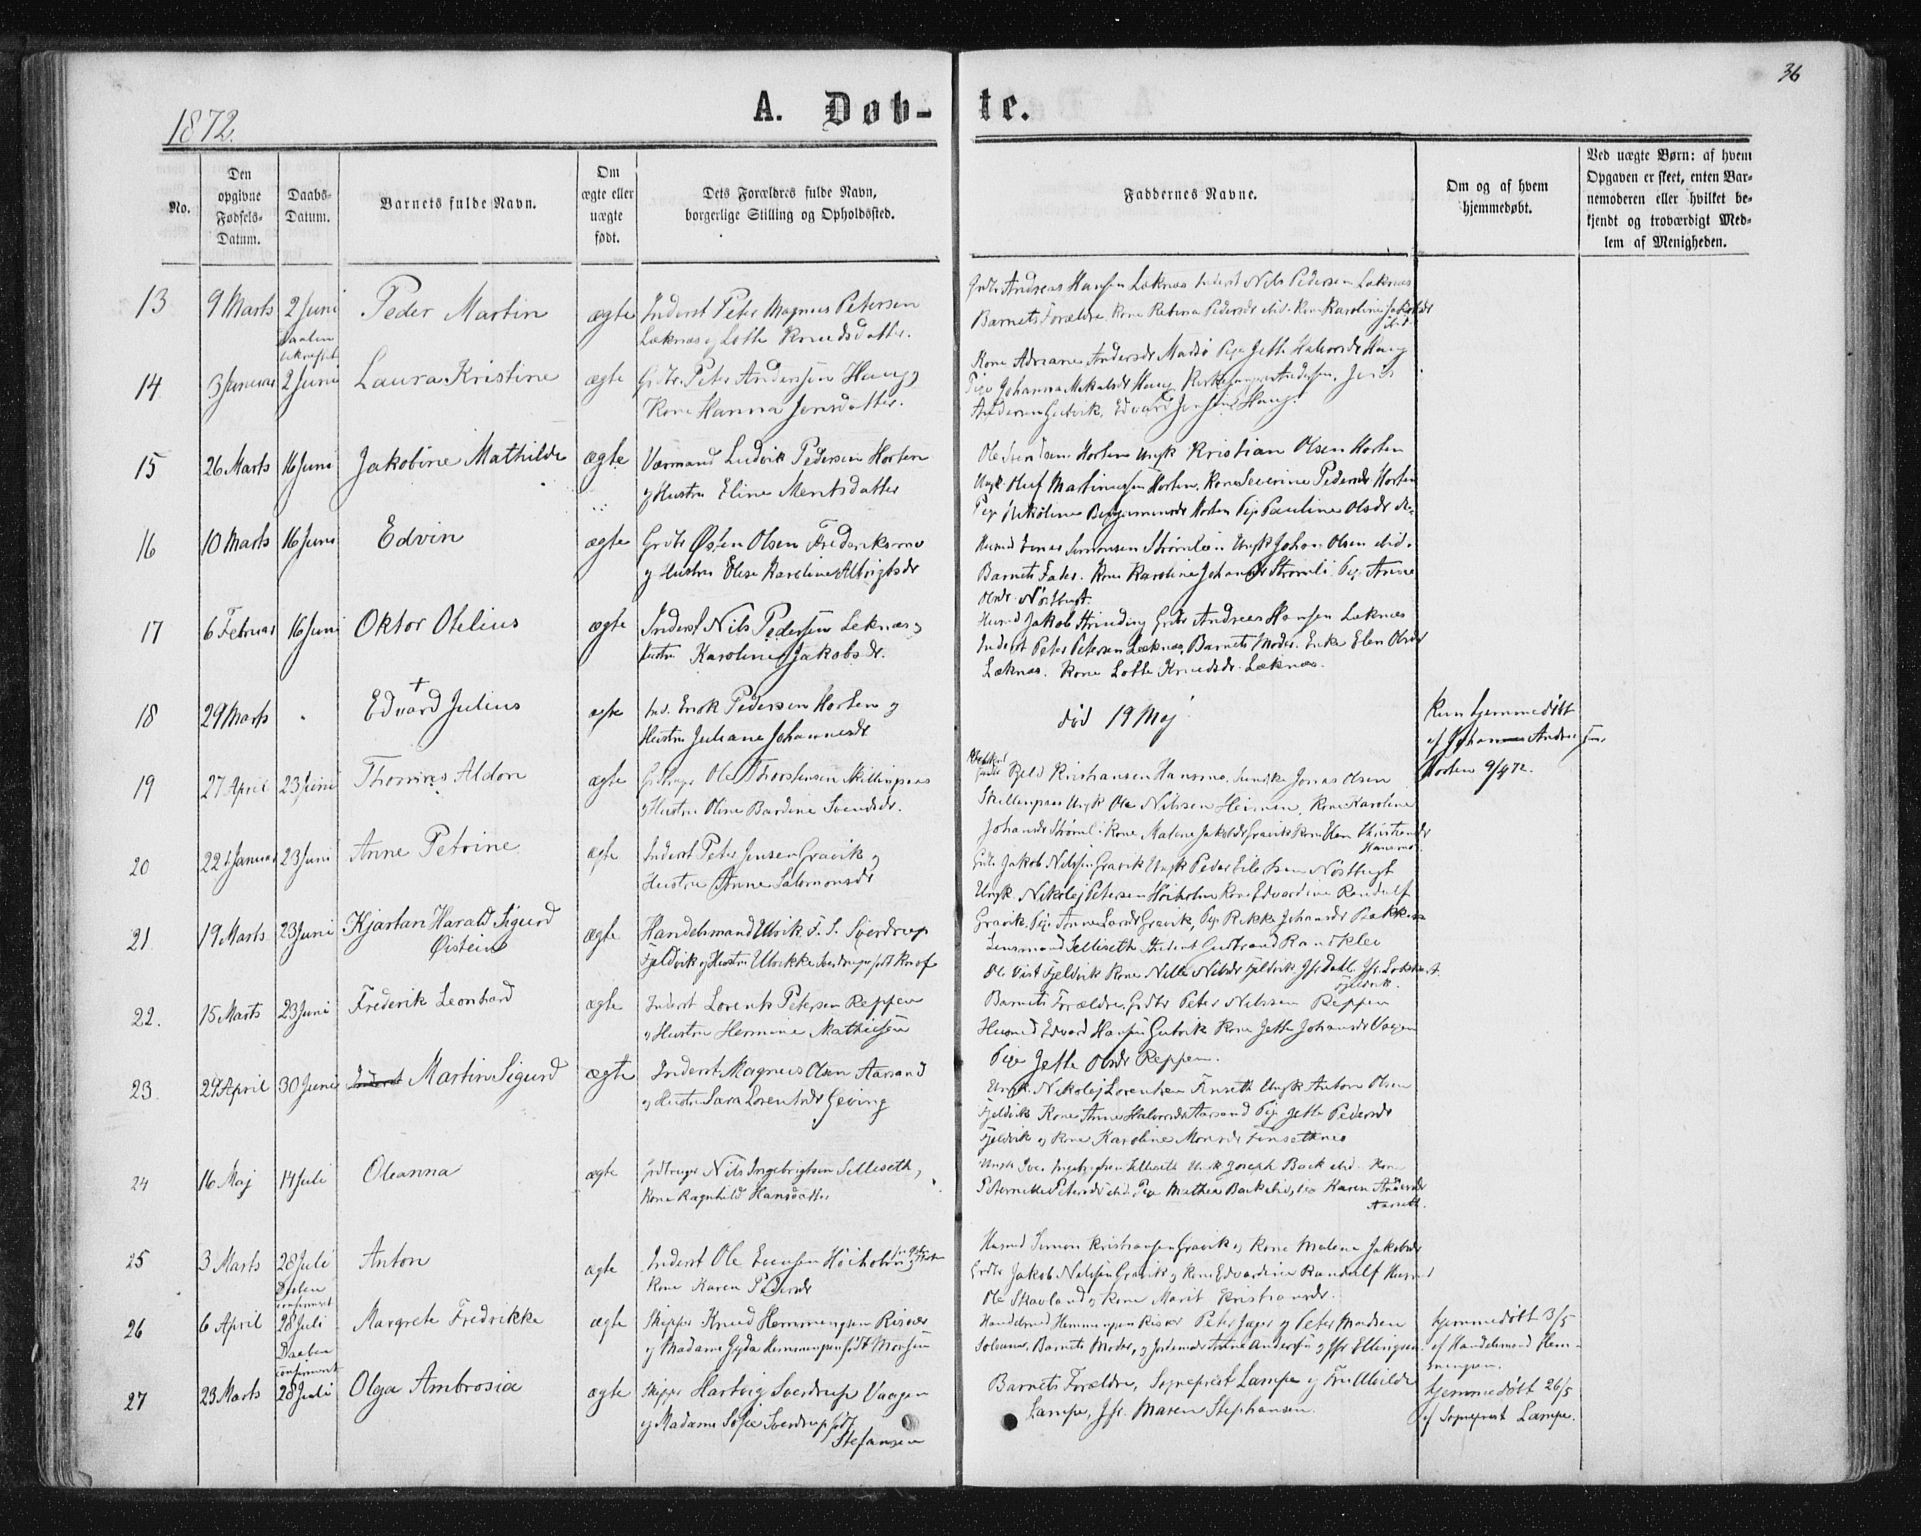 36
1872.
A. Døb-
te.
No.
Den opgivne Fødsels-Datum.
Daabs-Datum.
Barnets fulde Navn.
Om ægte eller uægte født.
Dets Forældres fulde Navn, borgerlige Stilling og Opholdssted.
Faddernes Navne.
Om og af hvem hjemmedøbt.
Ved uægte Børn: af hvem Opgaven er skeet, enten Barnemoderen eller hvilket bekjendt og troværdigt Medlem af Menigheden.
13 9 Marts 2 Juni Peder Martin ægte Inderst Peter Magnus Petersen
Læknæs og Lotte Knudsdatter.
Andreas Hansen Læknæs Inderst Nils Pedersen Læknæs
Barnets Forældre, Kone Rebina Pedersdr ibid. Kone Karoline Jakobsdr ibid.
Daaben bekræftet
14 3 Januar 2 Juni Laura Kristine ægte Grdbr. Peter Andersen Haug og
Kone Hanna Jensdatter.
Kone Adriane Andersdr Madsø Pige Jette Halvorsdr Haug
Pige Johanna Mikalsdr Haug, Kirkesanger Andersen, Jens
Andersen Gutvik, Edvard Jensen Haug.
15 26 Marts 16 Juni Jakobine Mathilde ægteVærmand Ludvik Pedersen Horten
og Hustru Eline Mentsdatter
Ole Svendsen Horten Ungk Kristian Olsen Horten
Ungk. Oluf Martinussen Horten, Kone Severine Pedersdr Horten
Pige Nikoline Benjaminsdr Horten Pige Pauline Olsdr
16 10 Marts 16 Juni Edvin ægte Grdbr Østen Olsen Frederiksmo
og Hustru Elise Karoline Albrigtsdr
Husmd Jonas Simonsen Strømli Ungk Johan Olsen ibid.
Barnets Fader. Kone Karoline Johansdr Strømli. Pige Anne
Olsdr Nøstbugt.
17 6 Februar 16 Juni Oktor Otelius ægte Inderst Nils Pedersen Leknæs og
Hustru Karoline Jakobsdr.
Husmd Jakob Strinding Grdbr Andreas Hansen Leknæs
Inderst Peter Petersen Læknæs, Barnets Moder. Enke Elen Olsdr
Læknæs. Kone Lotte Knudsdr Læknæs.
18 29 Marts + Edvard Julius ægte Ind. Enok Pedersen Horten og
Hustru Juliane Johannesdr
død 19 Maj
Kun hjemmedøbt
af Johannes Andreassen
Horten 9/4 72.
19 27 April 23 Juni Thomas Aldon ægte Ole Thorstensen Skillingsaas
og Hustru Oline Bardine Svendsdr.
Kristiansen Hansmo, Jonas Olsen
Ungk Ole Nilssen Heimen, Kone Karoline
Johansdr Strømli. Kone Malene Jakobsdr Gravik Kone Elen Kristiansdr
Hansmo
20 22 Januar 23 Juni Anne Petrine ægte Inderst Peter Jensen Gravik og
Hustru Anne Salomonsdr
Grdbr Jakob Nilssen Gravik Ungk Peder Nøstbugt
Ungk. Nikolej Petersen Høiholm Kone Edvardine Randulf
Gravik, Pige Anne Larsdr Gravik, Pige Rikke Johansdr Bakken
21 19 Marts 23 Juni Kjartan Harald Sigurd
Øistein ægte Handelsmand Ulrik F. S. Sverdrup
Fjeldvik og Hustru Ulrikke Sverdrup født Knof
Lensmand Selliseth Student Gutbrand Randklev
Ole Vist Fjeldvik Kone Nilla Nilsdr Fjeldvik Jfr Dahl, Jfr
Fjeldvik.
22. 15 Marts 23 Juni Frederik Leonhard ægte Inderst Lorents Petersen Reppen
og Hustru Hermine Mathiesen
Barnets Forældre, Grdbr Peter Nilssen Reppen
Husmd Edvard Hansen Gutvik Kone Jette Johansdr Vaagen
Pige Jette Olsdr Reppen.
23. 29 April 30 Juni Martin Sigurd ægte Inderst Magnus Olsen Aarsand
og Hustru Sara Lorentsdr Geving
Ungk Nikolej Lorentsen Finseth Ungk Anton Olsen
Fjeldvik Kone Anne Halvorsdr Aarsand Pige Jette Pedersdr
Fjeldvik og Kone Karoline Monsdr Finsethnes
24 16 Maj 14 Juli Oleanna ægte Grdbruger Nils Ingebrigtsen Selliseth,
Kone Ragnhild Hansdatter
Ungk Iver Ingebrigtsen Selliseth Ungk Joseph Bock ibid. Kone
Peternelle Petersdr ibid. Pige Mathea Bock ibid, Pige Karen Andersdr
Aarseth.
25 3 Marts 28 Juli Anton ægte Inderst Ole Evensen Høiholm
Kone Karen Pedersdr
Husmd Simon Kristiansen Gravik og Kone Malene Jakobsdr
Grdbr Jakob Nilssen Gravik og Kone Edvardine Randulf Husmd
Ole Skavland og Kone Marit Kristiansdr.
Daaben confirmert
26 6 April 28 Juli Margrete Fredrikke ægte Skipper Knud Hemmingsen Risvær
og Madame Gyda Hemmingsen født Monsen
Handelsmd Hemmingsen Risvær Peter Jæger og Peter Madsen
Solvær. Barnets Moder, og Jordemoder Anne Andersen og Jfr Ellingsen
hjemmedøbt 3/5
af Handelsmand Hem-
mingsen.
Daaben confirmert
27 23 Marts 28 Juli Olga Ambrosia ægte Skipper Hartvig Sverdrup Vaagen
og Madame Sofie Sverdrup født
Stefansen
Barnets Forældre, Sogneprest Lampe og Fru Alvilde
Lampe, Jfr. Maren Stephansen.
hjemmedøbt 26/5
af Sogneprest Lampe.